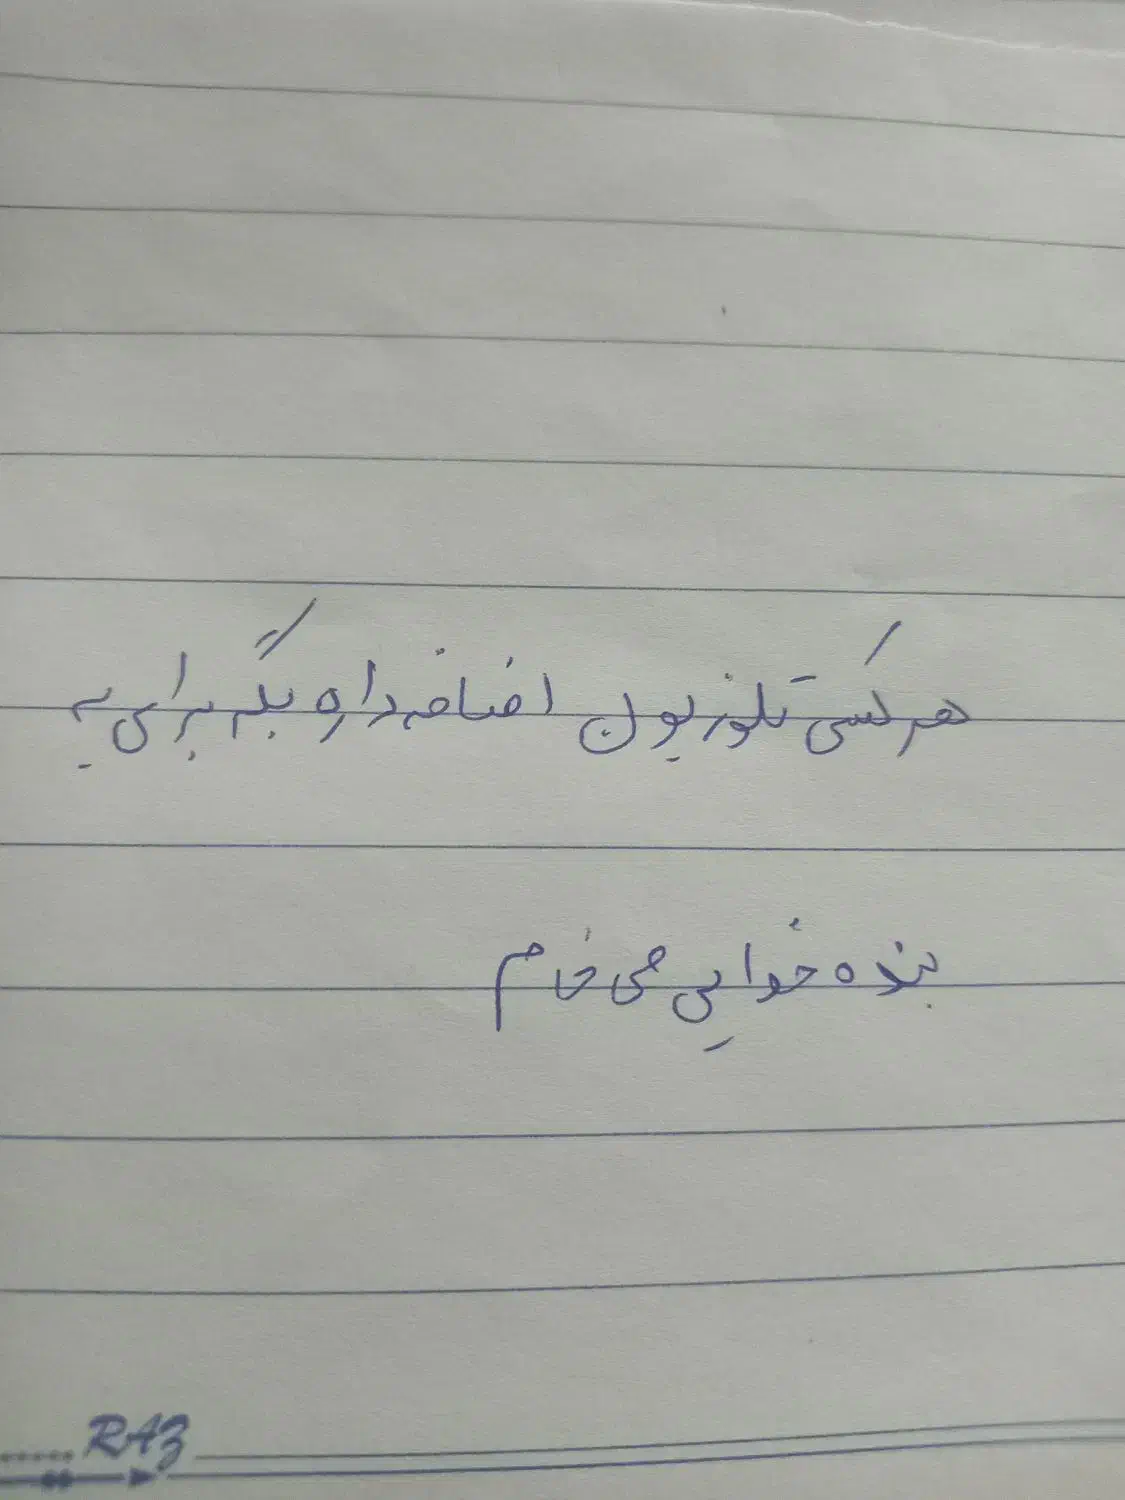 هر کسی تلوزیون اضافه داره بگه برای یه
بنده خوایی می خام
RAZ